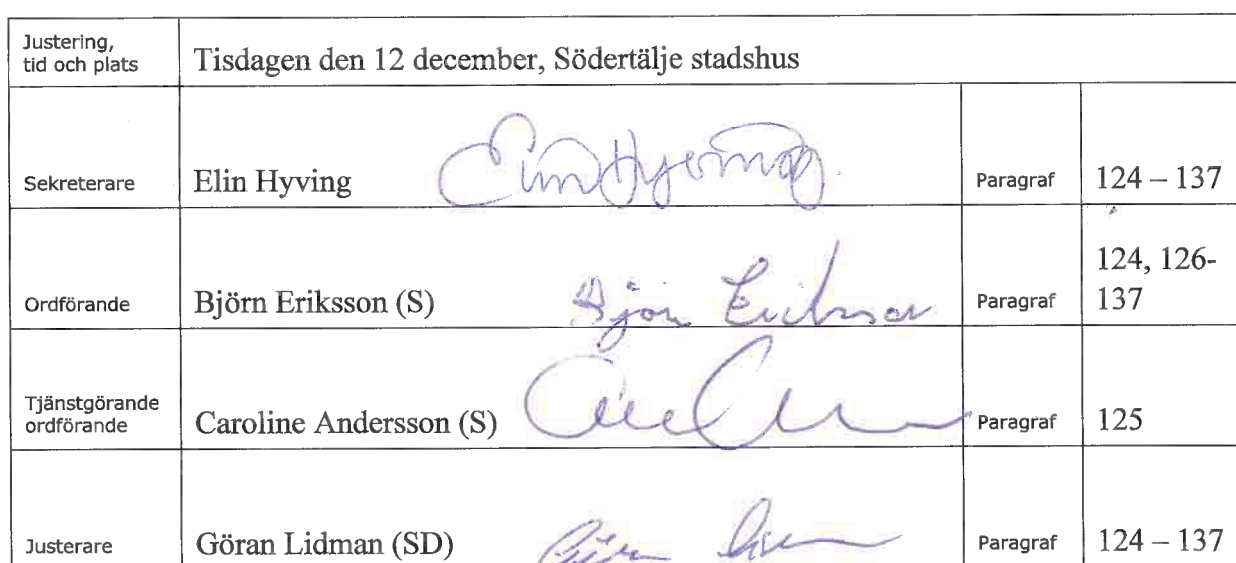 Justering,
tid och plats
Tisdagen den 12 december, Södertälje stadshus
Sekreterare
Elin Hyving
Elin Hyving
Paragraf
124 – 137
Ordförande
Björn Eriksson (S)
Björn Eriksson
Paragraf
124, 126-
137
Tjänstgörande
ordförande
Caroline Andersson (S)
Paragraf
125
Justerare
Göran Lidman (SD)
Göran
Paragraf
124 – 137